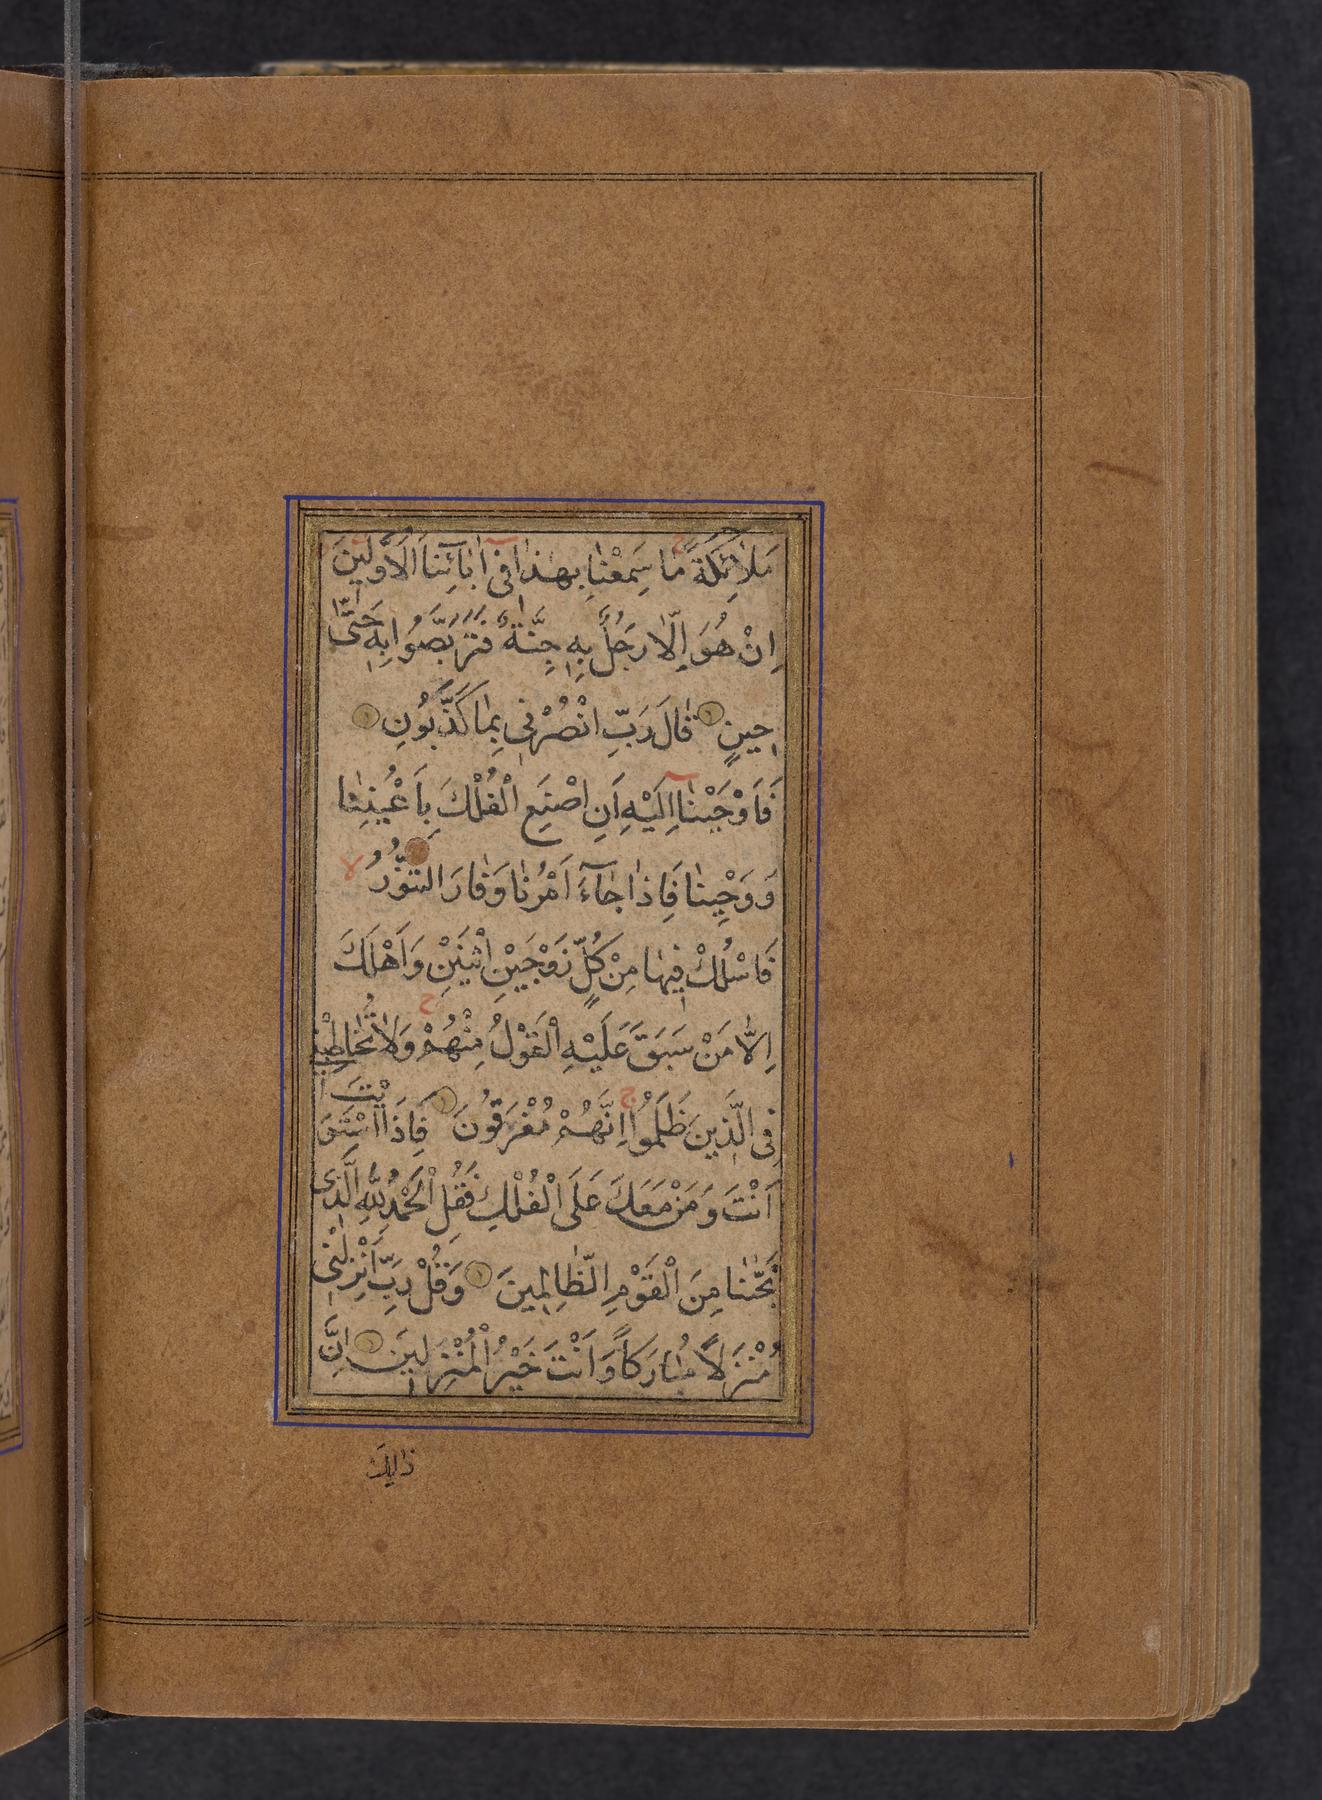 مَلٰائِكَةً مٰا سَمِعْنٰا بِهٰذٰا فِى اٰبٰائِنَا الْاَوَّلِينَ
اِنْ هُوَ اِلّٰا رَجُلٌ بِهِ جِنَّةٌ فَتَرَبَّصُوا بِهِ حَتّٰى
حِينٍ قٰالَ رَبِّ انْصُرْنِى بِمٰا كَذَّبُونِ
فَاَوْحَيْنٰا اِلَيْهِ اَنِ اصْنَعِ الْفُلْكَ بِاَعْيُنِنٰا
وَوَحْيِنٰا فَاِذٰا جٰآءَ اَمْرُنٰا وَفٰارَ التَّنُّورُ لا
فَاسْلُكْ فِيهٰا مِنْ كُلٍّ زَوْجَيْنِ اثْنَيْنِ وَاَهْلَكَ
اِلّٰا مَنْ سَبَقَ عَلَيْهِ الْقَوْلُ مِنْهُمْ ج وَلٰا تُخٰاطِبْنِى
فِى الَّذِينَ ظَلَمُوا ج اِنَّهُمْ مُغْرَقُونَ فَاِذَا اسْتَوَيْتَ
اَنْتَ وَمَنْ مَعَكَ عَلَى الْفُلْكِ فَقُلِ الْحَمْدُ لِلّٰهِ الَّذِى
نَجّٰىنٰا مِنَ الْقَوْمِ الظّٰالِمِينَ وَقُلْ رَبِّ اَنْزِلْنِى
مُنْزَلاً مُبٰارَكاً وَاَنْتَ خَيْرُ الْمُنْزِلِينَ اِنَّ
ذٰلِكَ